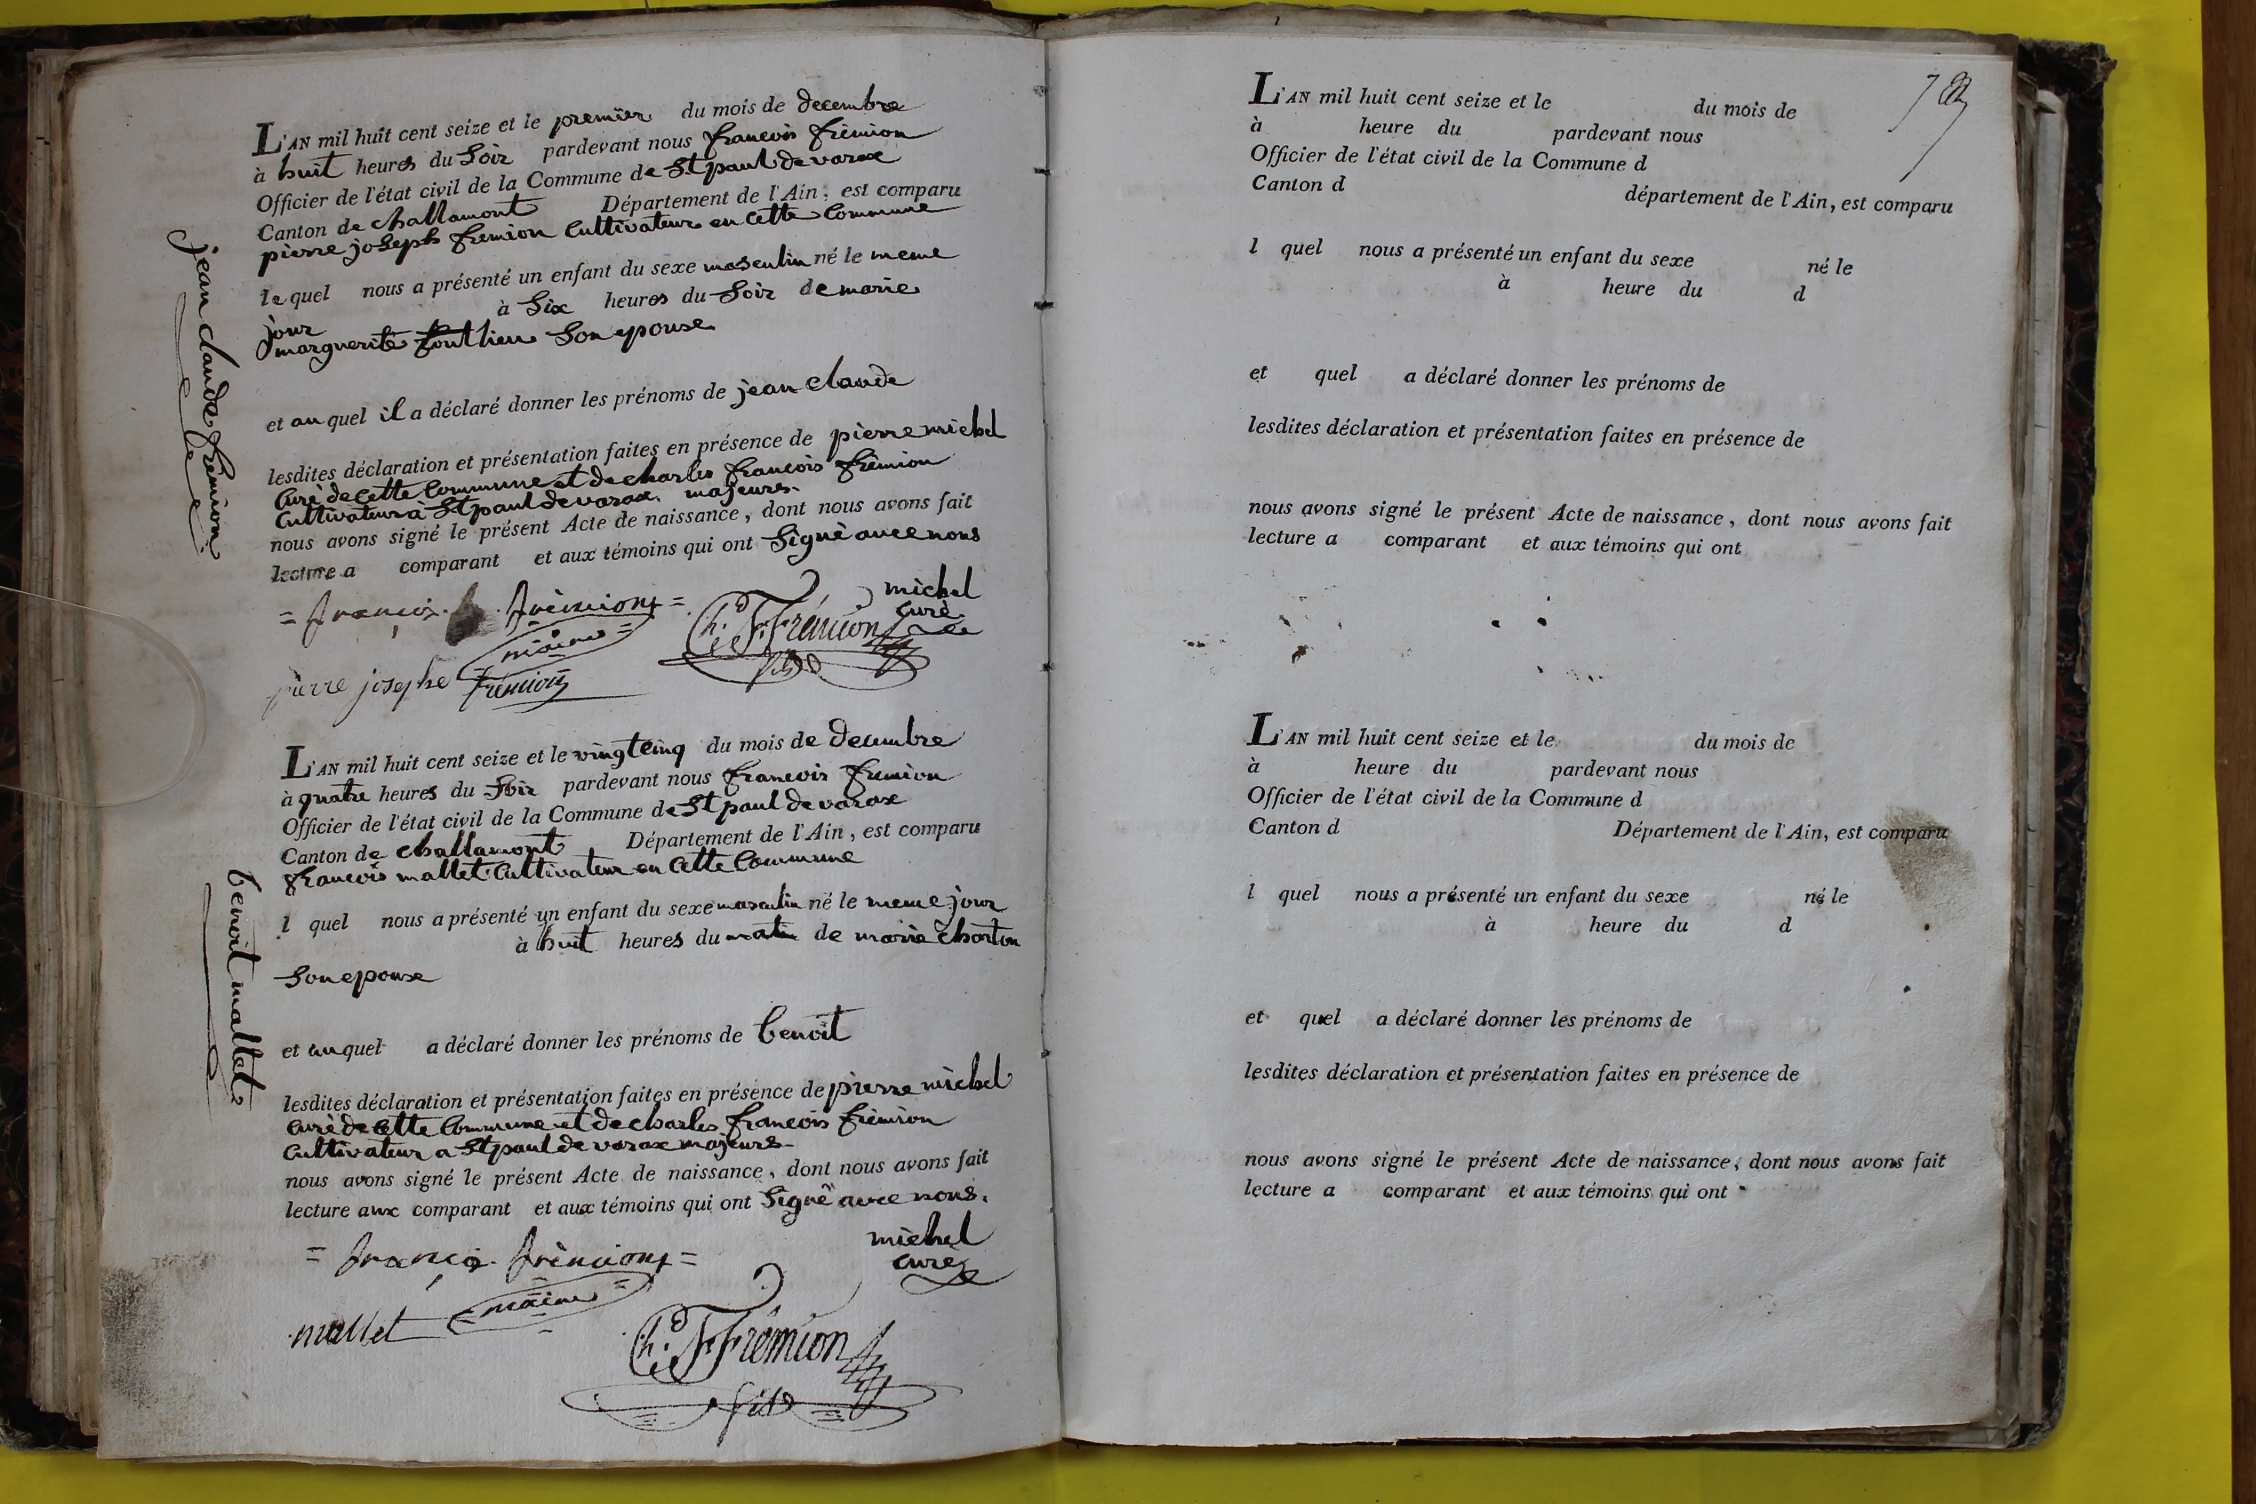 L'AN mil huit cent seize et le premier du mois de decembre
à huit heures du Soir pardevant nous francois frémion
Officier de l'état civil de la Commune de St paul de varax
Canton de challamont Département de l'Ain, est comparu
pierre joseph fremion Cultivateur en cette Commune
le quel nous a présenté un enfant du sexe masculin né le meme
jour à Six heures du Soir de marie
marguerite Son epouse
et au quel il a déclaré donner les prénoms de jean claude
lesdites déclaration et présentation faites en présence de pierre michel
Curé de cette Commune et de charles francois frémion
Cultivateur à St paul de varax. majeurs.
nous avons signé le présent Acte de naissance, dont nous avons fait
lecture a comparant et aux témoins qui ont Signé avec nous
jean claude frémion
= françois frémion =
maire
michel
curé
Ch. F. Frémion
fils
pierre josephe Frémion
L'AN mil huit cent seize et le vingt cinq du mois de decembre
à quatre heures du Soir pardevant nous francois fremion
Officier de l'état civil de la Commune de St paul de varax
Canton de challamont Département de l'Ain, est comparu
francois mallet Cultivateur en cette Commune
l quel nous a présenté un enfant du sexe masculin né le meme jour
à huit heures du matin de marie Charton
Son epouse
et au quel a déclaré donner les prénoms de benoit
lesdites déclaration et présentation faites en présence de pierre michel
Curé de cette Commune et de charles francois frémion
Cultivateur a St paul de varax majeurs
nous avons signé le présent Acte de naissance, dont nous avons fait
lecture aux comparant et aux témoins qui ont Signé avec nous.
benoit mallet
= françois frémion =
maire
michel
curé
mallet
Ch. F. Frémion
fils
L'AN mil huit cent seize et le du mois de
à heure du pardevant nous
Officier de l'état civil de la Commune d
Canton d département de l'Ain, est comparu
l quel nous a présenté un enfant du sexe né le
à heure du d
et quel a déclaré donner les prénoms de
lesdites déclaration et présentation faites en présence de
nous avons signé le présent Acte de naissance, dont nous avons fait
lecture a comparant et aux témoins qui ont
L'AN mil huit cent seize et le du mois de
à heure du pardevant nous
Officier de l'état civil de la Commune d
Canton d Département de l'Ain, est comparu
l quel nous a présenté un enfant du sexe né le
à heure du d
et quel a déclaré donner les prénoms de
lesdites déclaration et présentation faites en présence de
nous avons signé le présent Acte de naissance, dont nous avons fait
lecture a comparant et aux témoins qui ont